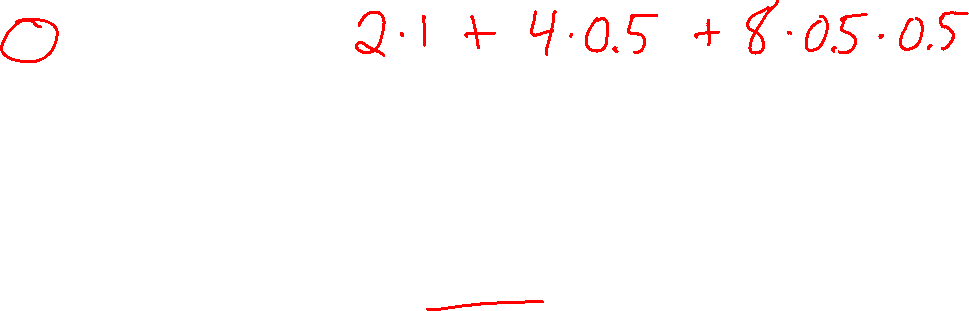 2·1 + 4·0.5 + 8·0.5·0.5